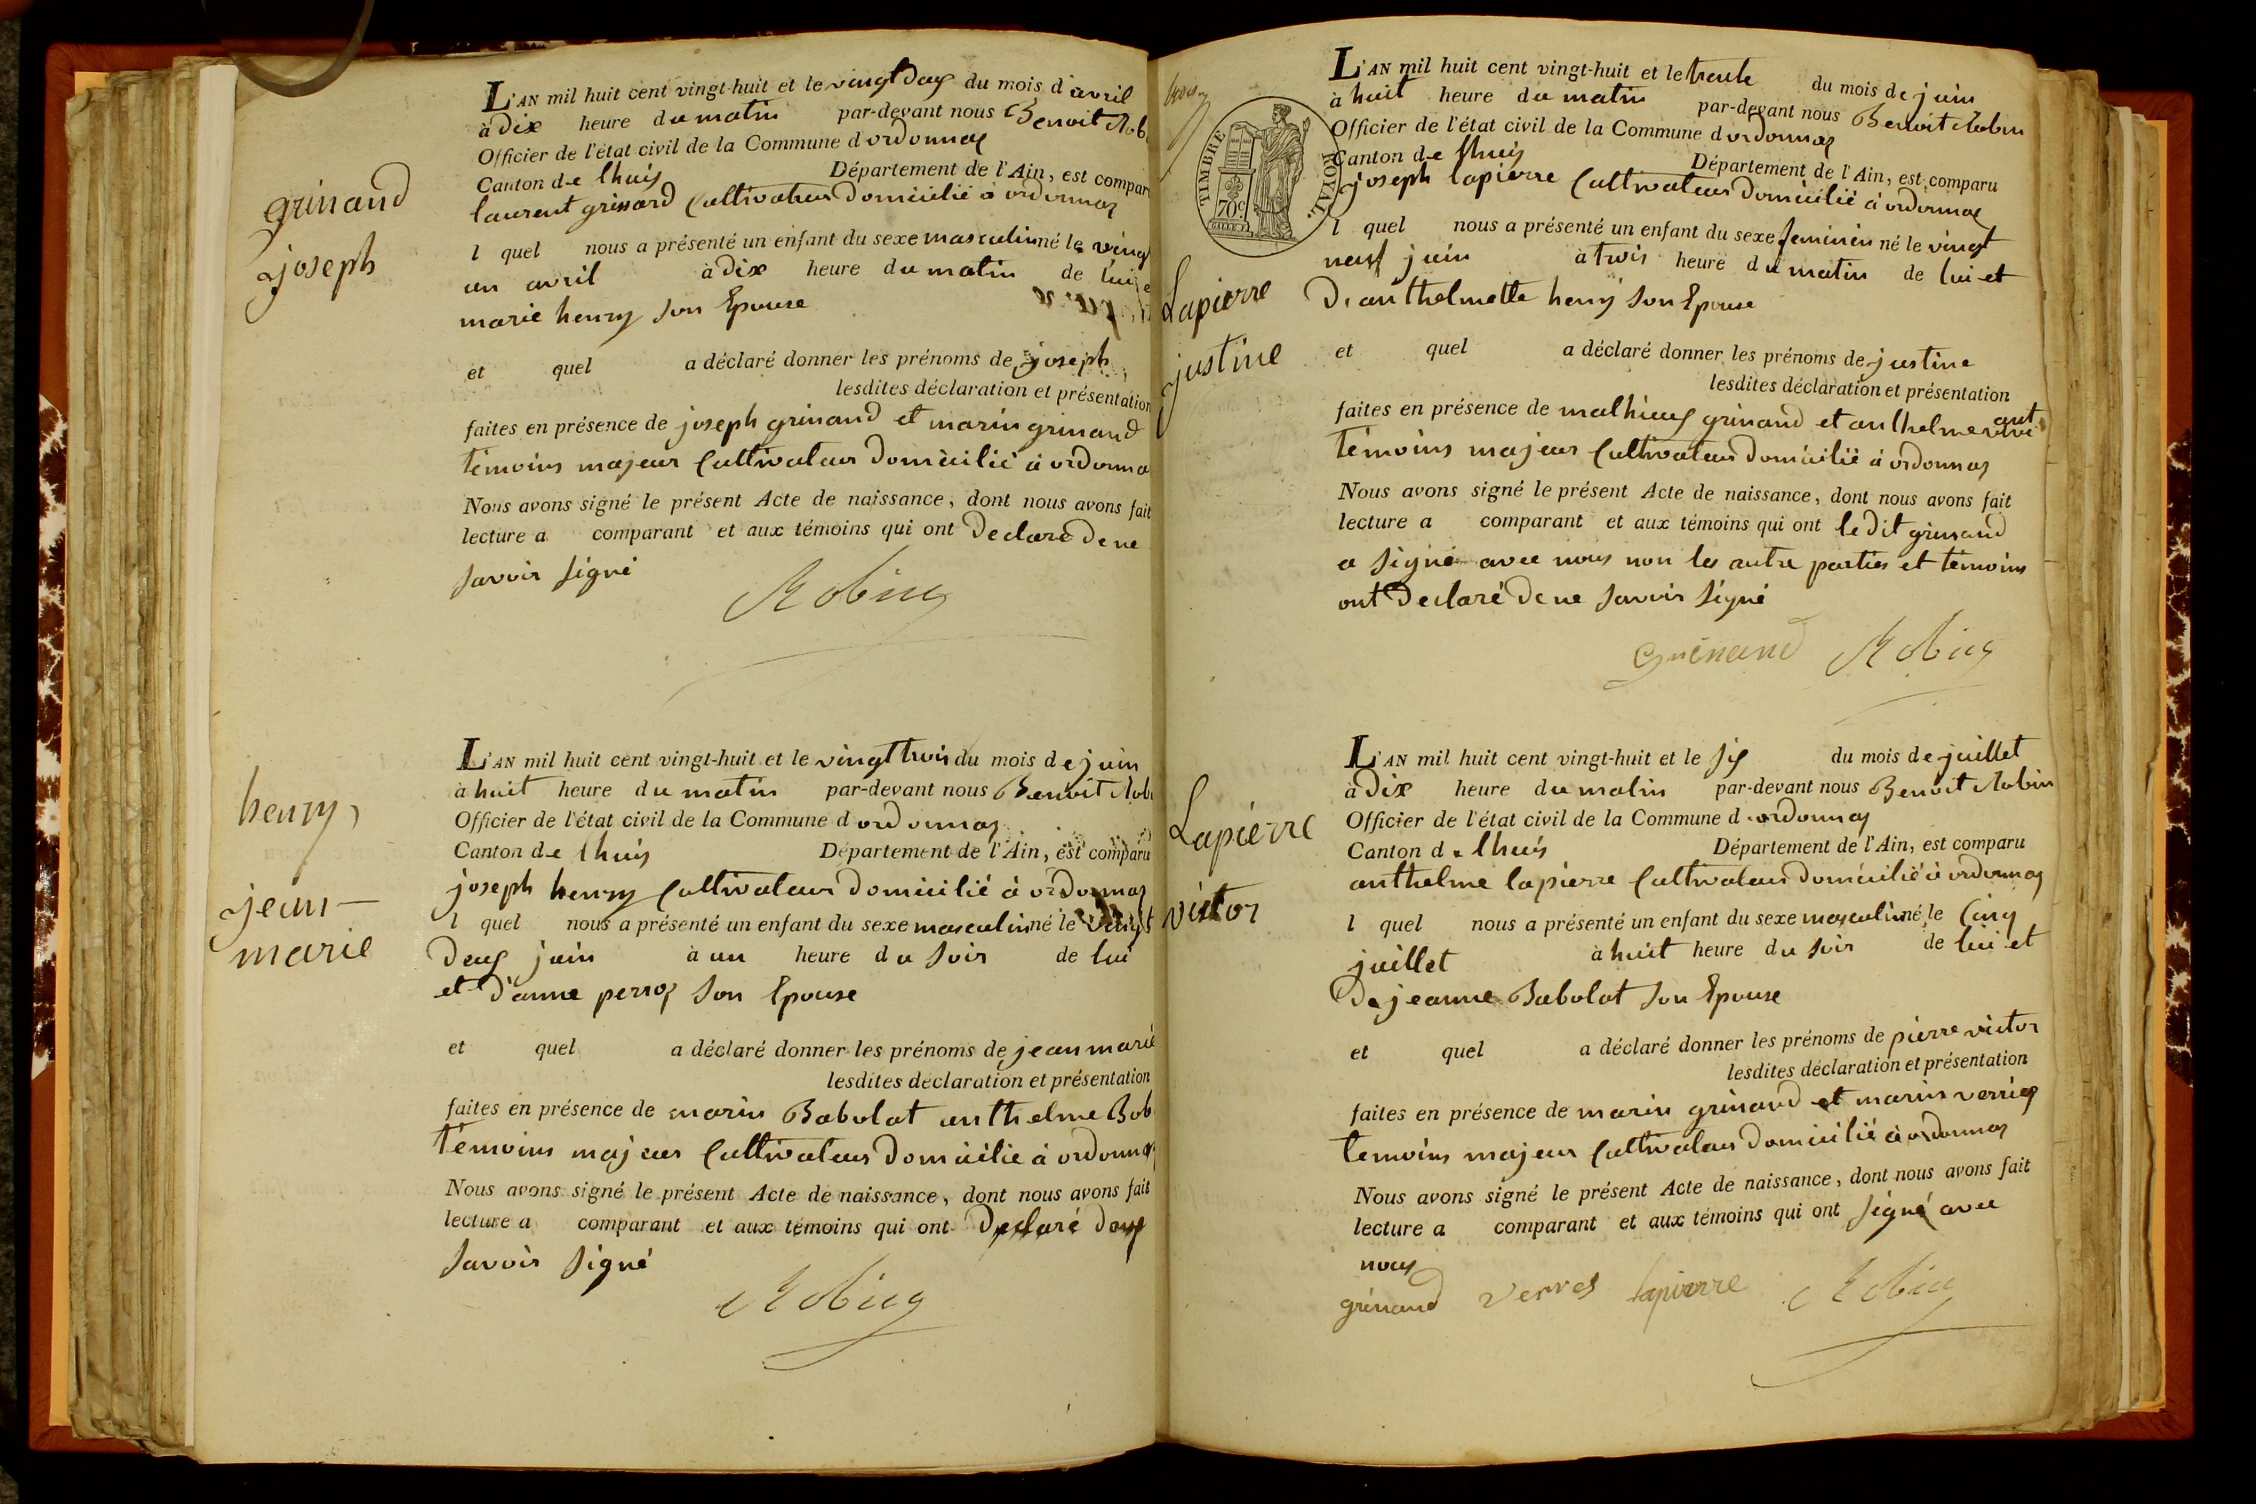 grinand
joseph
L'AN mil huit cent vingt-huit et le vingt deux du mois d'avril
à dix heure du matin par-devant nous Benoit Robi
Officier de l'état civil de la Commune d'ordonnaz
Canton de lhuis Département de l'Ain, est compar
laurent grinand Cultivateur domicilié à ordonnaz
l quel nous a présenté un enfant du sexe masculin né le vingt
un avril à dix heure du matin de lui e
marie henry son Epouse
et quel a déclaré donner les prénoms de joseph
lesdites déclaration et présentation
faites en présence de joseph grinand et marin grinand
témoins majeur Cultivateur domicilié à ordonna
Nous avons signé le présent Acte de naissance, dont nous avons fait
lecture a comparant et aux témoins qui ont declaré de ne
savoir signé
Robin
henry
jean
marie
L'AN mil huit cent vingt-huit et le vingt trois du mois de juin
à huit heure du matin par-devant nous Benoit Robi
Officier de l'état civil de la Commune d ordonnaz
Canton de lhuis Département de l'Ain, est comparu
joseph henry Cultivateur domicilié à ordonnaz
l quel nous a présenté un enfant du sexe masculin né le vingt
deux juin à un heure du soir de lui
et d'anne perroz son Epouse
et quel a déclaré donner les prénoms de jean marie
lesdites déclaration et présentation
faites en présence de marin Babolat anthelme Bob
témoins majeur Cultivateur domicilié à ordonnaz
Nous avons signé le présent Acte de naissance, dont nous avons fait
lecture a comparant et aux témoins qui ont declaré
savoir signé
Robin
TIMBRE ROYAL.
70c
Lapierre
justine
L'AN mil huit cent vingt-huit et le trente du mois de juin
à huit heure du matin par-devant nous Benoit Robin
Officier de l'état civil de la Commune d ordonnaz
Canton de lhuis Département de l'Ain, est comparu
joseph lapierre Cultivateur domicilié à ordonnaz
l quel nous a présenté un enfant du sexe feminin né le vingt
neuf juin à trois heure du matin de lui et
D'anthelmette henry son Epouse
et quel a déclaré donner les prénoms de justine
lesdites déclaration et présentation
faites en présence de mathieu grinand et anthelme
témoins majeur Cultivateur domicilié à ordonnaz
Nous avons signé le présent Acte de naissance, dont nous avons fait
lecture a comparant et aux témoins qui ont ledit grinand
a signé avec nous non les autre parties et témoins
ont declaré de ne savoir signé
Grinand Robin
Lapierre
victor
L'AN mil huit cent vingt-huit et le six du mois de juillet
à dix heure du matin par-devant nous Benoit Robin
Officier de l'état civil de la Commune d ordonnaz
Canton de lhuis Département de l'Ain, est comparu
anthelme lapierre Cultivateur domicilié à ordonnaz
l quel nous a présenté un enfant du sexe masculin né le Cinq
juillet à huit heure du soir de lui et
De jeanne Babolat son Epouse
et quel a déclaré donner les prénoms de pierre victor
lesdites déclaration et présentation
faites en présence de marin grinand et marin
témoins majeur Cultivateur domicilié à ordonnaz
Nous avons signé le présent Acte de naissance, dont nous avons fait
lecture a comparant et aux témoins qui ont signé avec
nous
grinand lapierre Robin